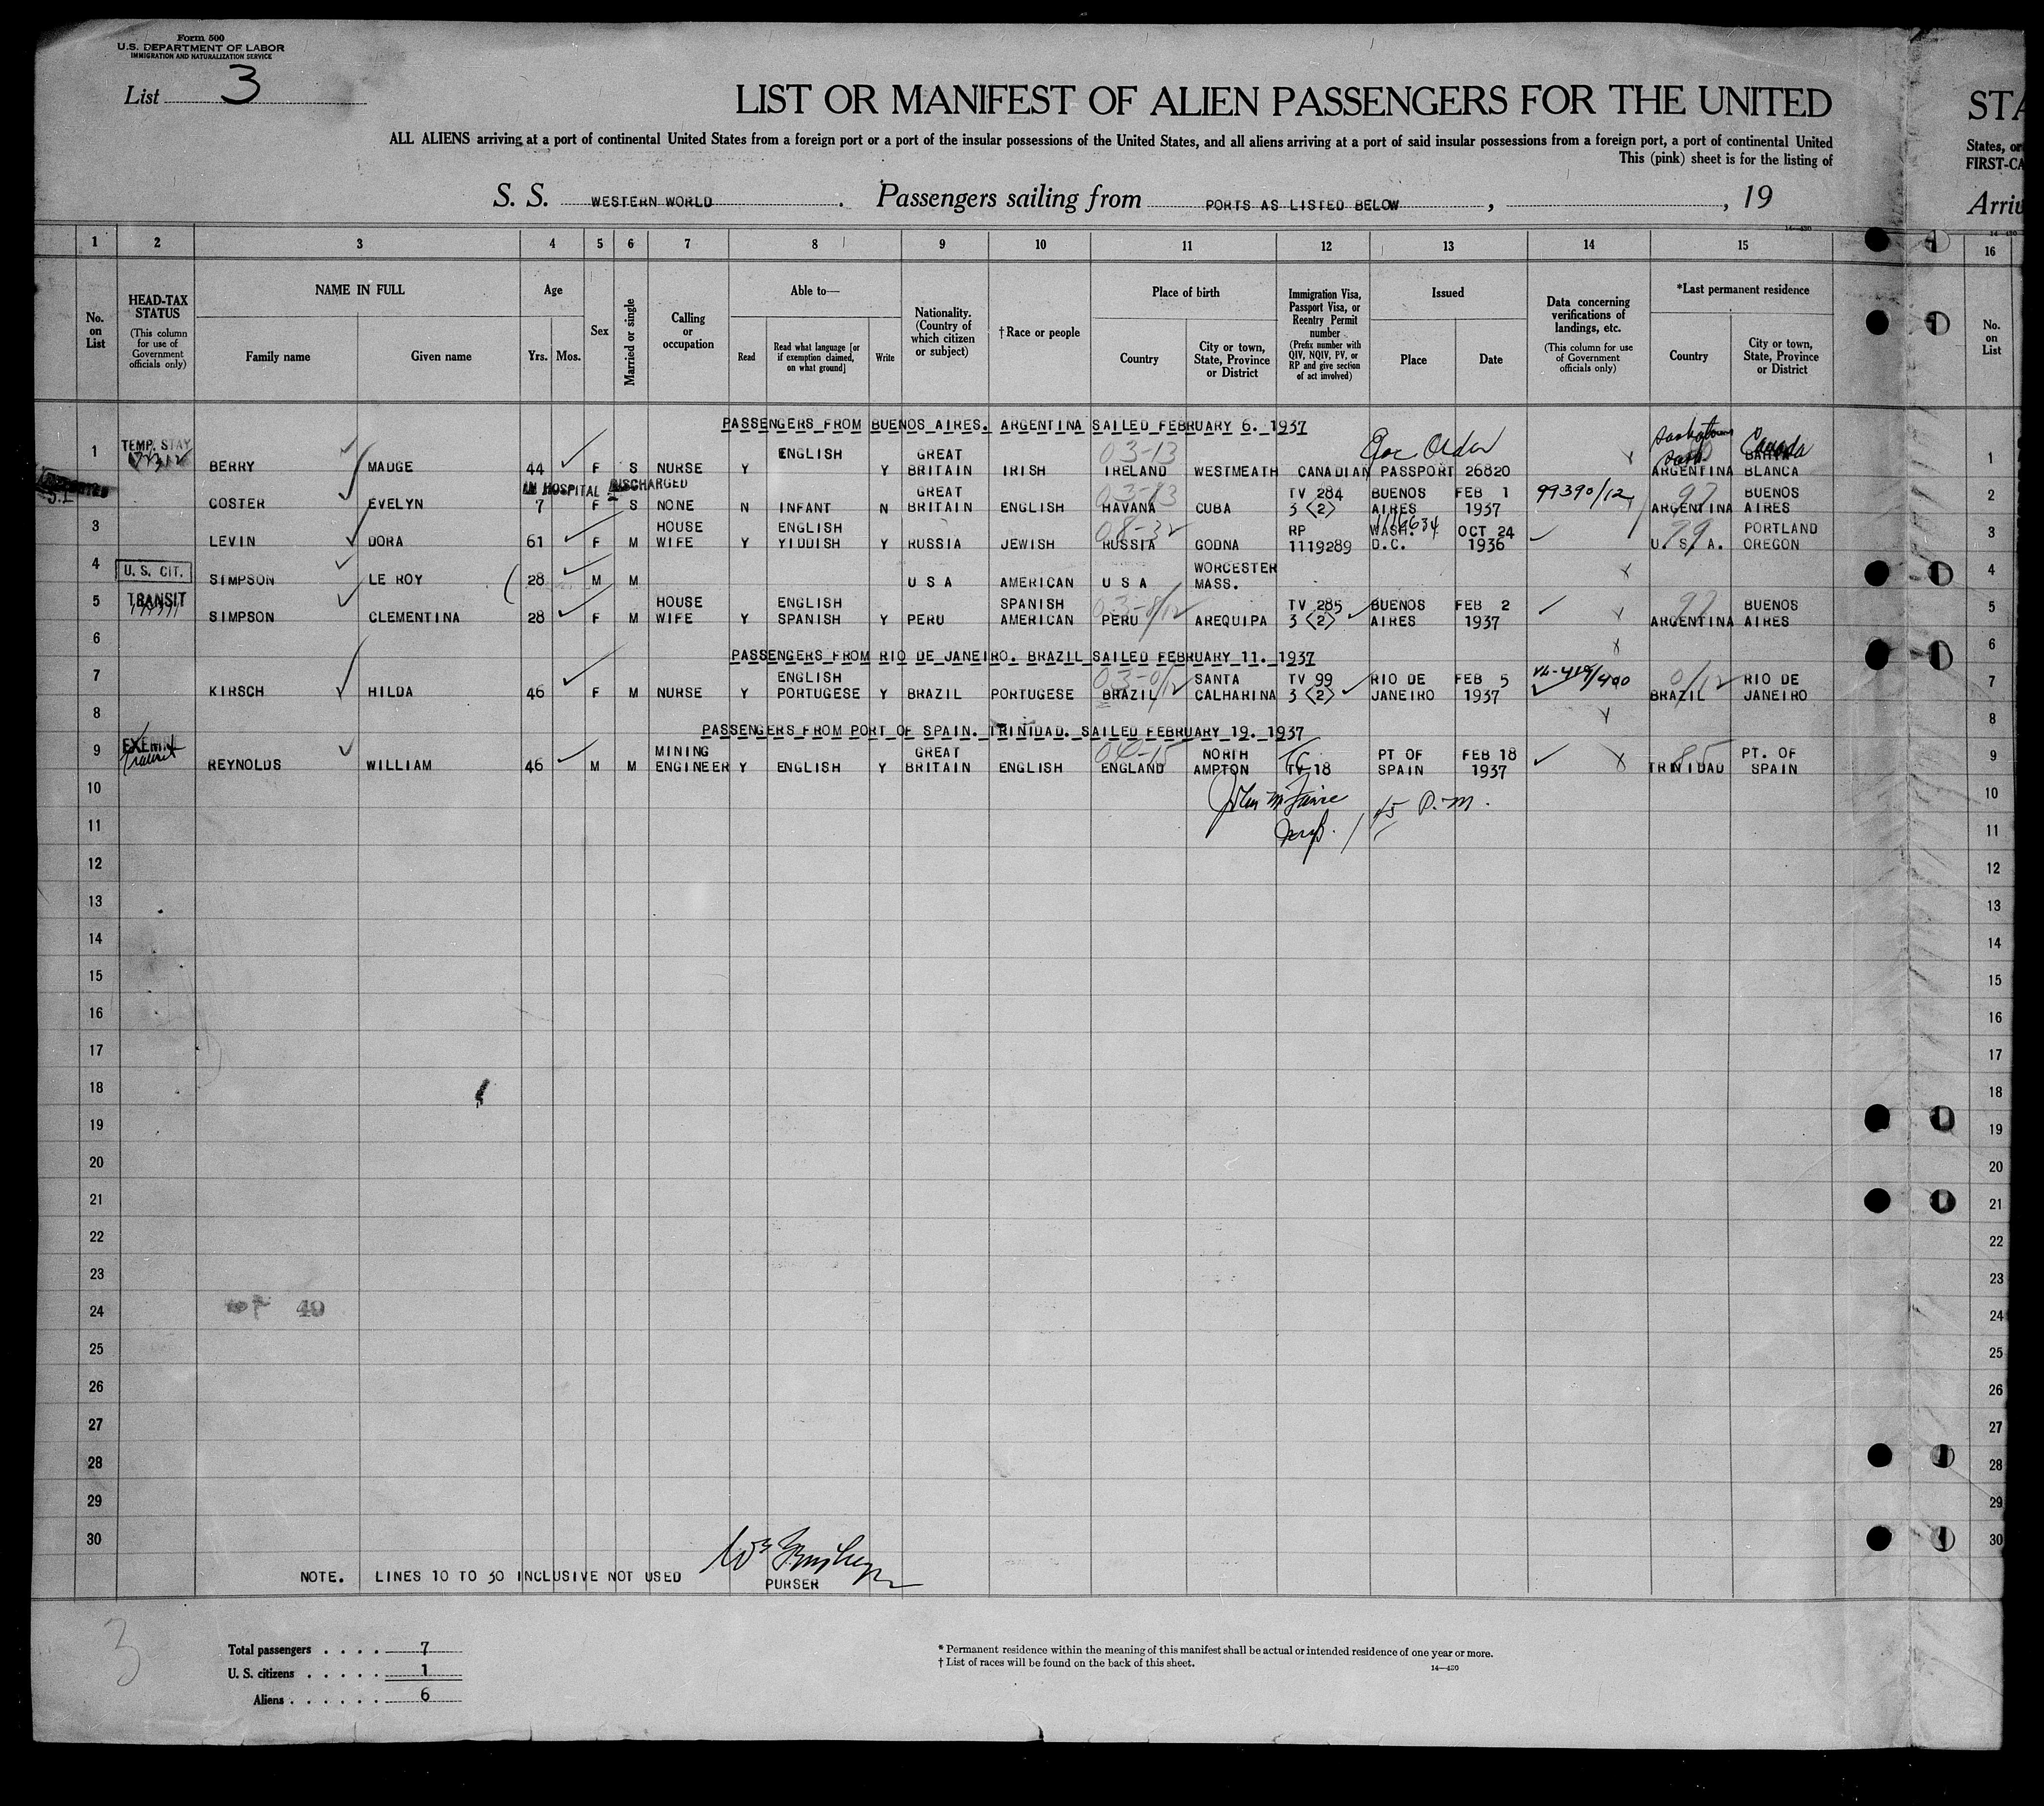 Form 500
U.S. DEPARTMENT OF LABOR
IMMIGRATION AND NATURALIZATION SERVICE
List 3
LIST OR MANIFEST OF ALIEN PASSENGERS FOR THE UNITED
STA
ALL ALIENS arriving at a port of continental United States from a foreign port or a port of the insular possessions of the United States, and all aliens arriving at a port of said insular possessions from a foreign port, a port of continental United
States, or
This (pink) sheet is for the listing of
FIRST-CA
S. S. WESTERN WORLD. Passengers sailing from PORTS AS LISTED BELOW, , 19
Arriv
14—430
1 2 3 4 5 6 7 8 9 10 11 12 13 14 15 16
No. on List
HEAD-TAX STATUS (This column for use of Government officials only)
NAME IN FULL Family name Given name
Age Yrs. Mos.
Sex
Married or single
Calling or occupation
Able to— Read Read what language [or if exemption claimed, on what ground] Write
Nationality. (Country of which citizen or subject)
†Race or people
Place of birth Country City or town, State, Province or District
Immigration Visa, Passport Visa, or Reentry Permit number (Prefix number with QIV, NQIV, PV, or RP and give section of act involved)
Issued Place Date
Data concerning verifications of landings, etc. (This column for use of Government officials only)
*Last permanent residence Country City or town, State, Province or District
No. on List
PASSENGERS FROM BUENOS AIRES. ARGENTINA SAILED FEBRUARY 6. 1937
1 TEMP. STAY BERRY MADGE 44 F S NURSE Y ENGLISH Y GREAT BRITAIN IRISH 03-13 IRELAND WESTMEATH CANADIAN PASSPORT 26820 ARGENTINA BAHIA BLANCA Canada 1
IN HOSPITAL DISCHARGED
2 COSTER EVELYN 7 F S NONE N INFANT N GREAT BRITAIN ENGLISH 03-13 HAVANA CUBA TV 284 3 (2) BUENOS AIRES FEB 1 1937 99390/12 ARGENTINA BUENOS AIRES 2
3 LEVIN DORA 61 F M HOUSE WIFE Y ENGLISH YIDDISH Y RUSSIA JEWISH 08-32 RUSSIA GODNA RP 1119289 WASH. D.C. OCT 24 1936 99 U. S. A. PORTLAND OREGON 3
4 U. S. CIT. SIMPSON LE ROY 28 M M U S A AMERICAN U S A WORCESTER MASS. 4
5 TRANSIT SIMPSON CLEMENTINA 28 F M HOUSE WIFE Y ENGLISH SPANISH Y PERU SPANISH AMERICAN PERU AREQUIPA TV 285 3 (2) BUENOS AIRES FEB 2 1937 ARGENTINA BUENOS AIRES 5
6 6
PASSENGERS FROM RIO DE JANEIRO. BRAZIL SAILED FEBRUARY 11. 1937
7 KIRSCH HILDA 46 F M NURSE Y ENGLISH PORTUGESE Y BRAZIL PORTUGESE BRAZIL SANTA CALHARINA TV 99 3 (2) RIO DE JANEIRO FEB 5 1937 BRAZIL RIO DE JANEIRO 7
8 8
PASSENGERS FROM PORT OF SPAIN. TRINIDAD. SAILED FEBRUARY 19. 1937
9 Transit REYNOLDS WILLIAM 46 M M MINING ENGINEER Y ENGLISH Y GREAT BRITAIN ENGLISH ENGLAND NORTH AMPTON TV 18 PT OF SPAIN FEB 18 1937 85 TRINIDAD PT. OF SPAIN 9
10 45 P.M. 10
11 11
12 12
13 13
14 14
15 15
16 16
17 17
18 18
19 19
20 20
21 21
22 22
23 23
24 49 24
25 25
26 26
27 27
28 28
29 29
30 30
NOTE. LINES 10 TO 30 INCLUSIVE NOT USED
PURSER
3
Total passengers . . . . 7
U. S. citizens . . . . . 1
Aliens . . . . . . 6
* Permanent residence within the meaning of this manifest shall be actual or intended residence of one year or more.
† List of races will be found on the back of this sheet.
14—430